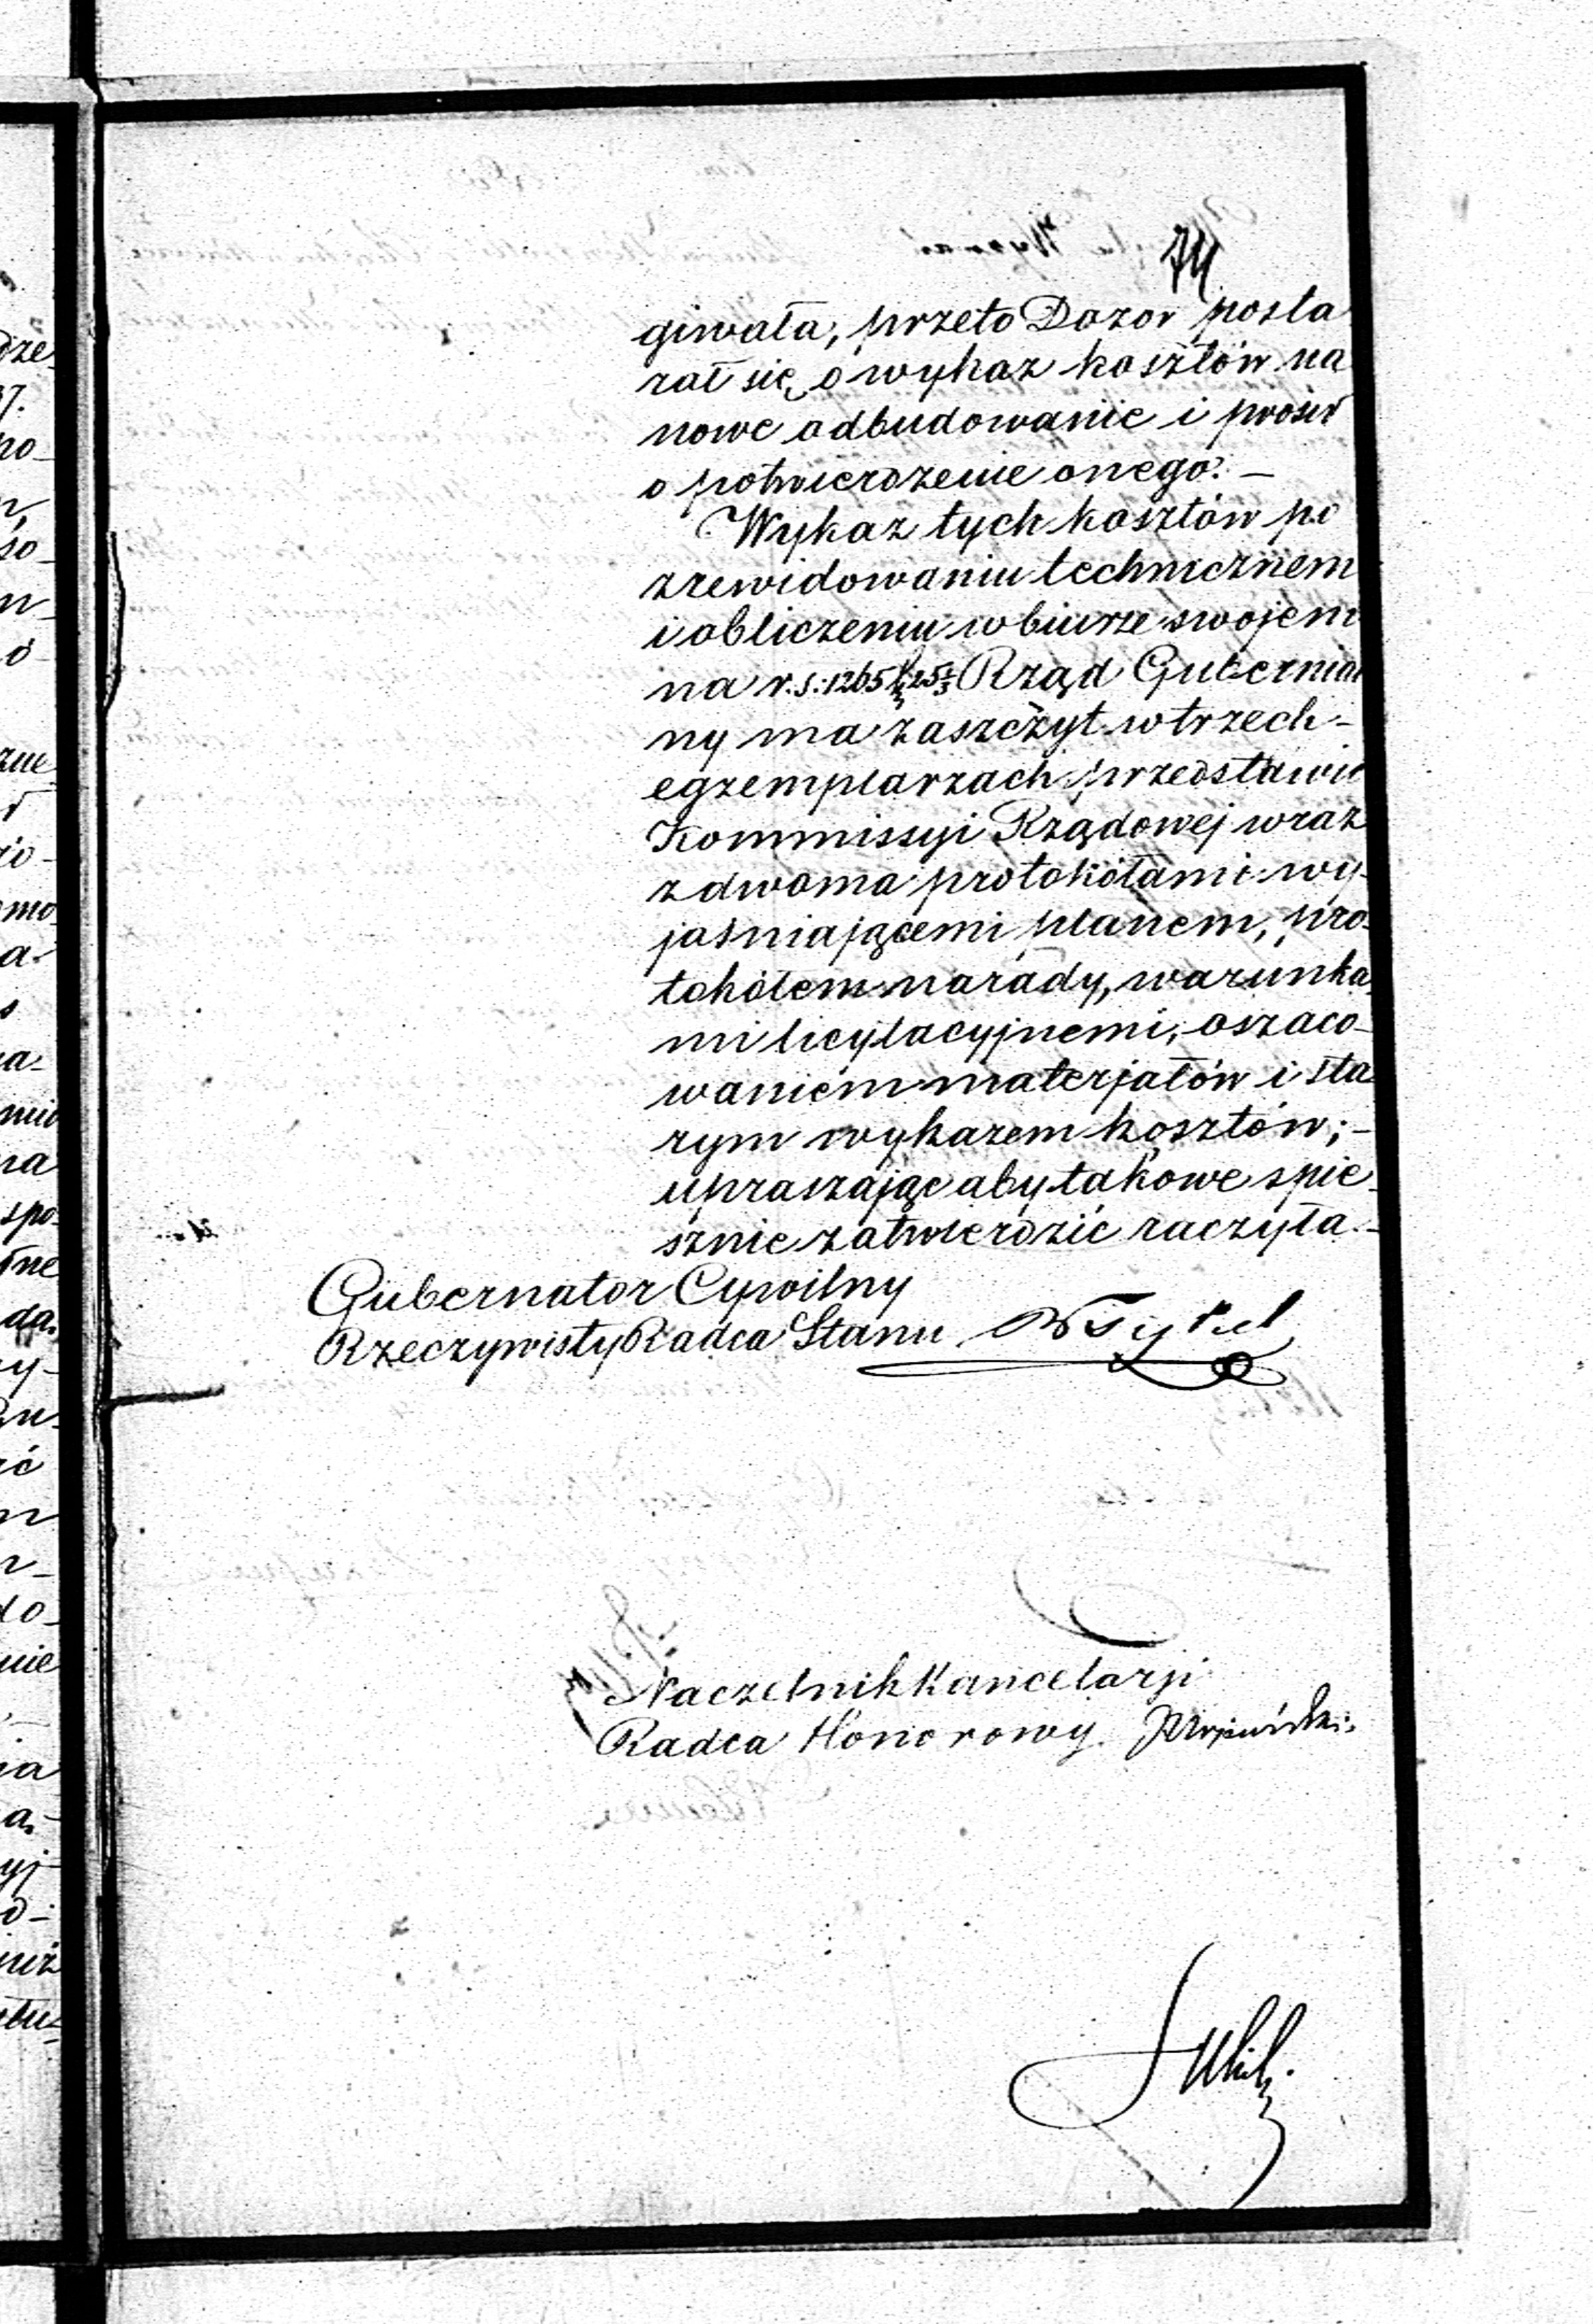 74
giwała, przeto Dozor posta
rał się o wykaz kosztów na
nowe odbudowanie i prosił
o potwierdzenie onego. —
Wykaz tych kosztów po
zrewidowaniu technicznem
i obliczeniu w biurze swojem
na r.s: 1265 Rząd Gubernial
ny ma zaszczyt w trzech –
egzemplarzach przedstawić
Kommissyi Rządowej wraz
z dwoma protokółami wy-
jaśniającemi planem, pro-
tokółem narady, warunka
mi licytacyjnemi, oszaco-
waniem materjałów i sta
rym wykazem kosztów; –
upraszając aby takowe spie-
sznie zatwierdzić raczyła. –
Gubernator Cywilny
Rzeczywisty Radca Stanu
Naczelnik Kancelarji
Radca Honorowy.